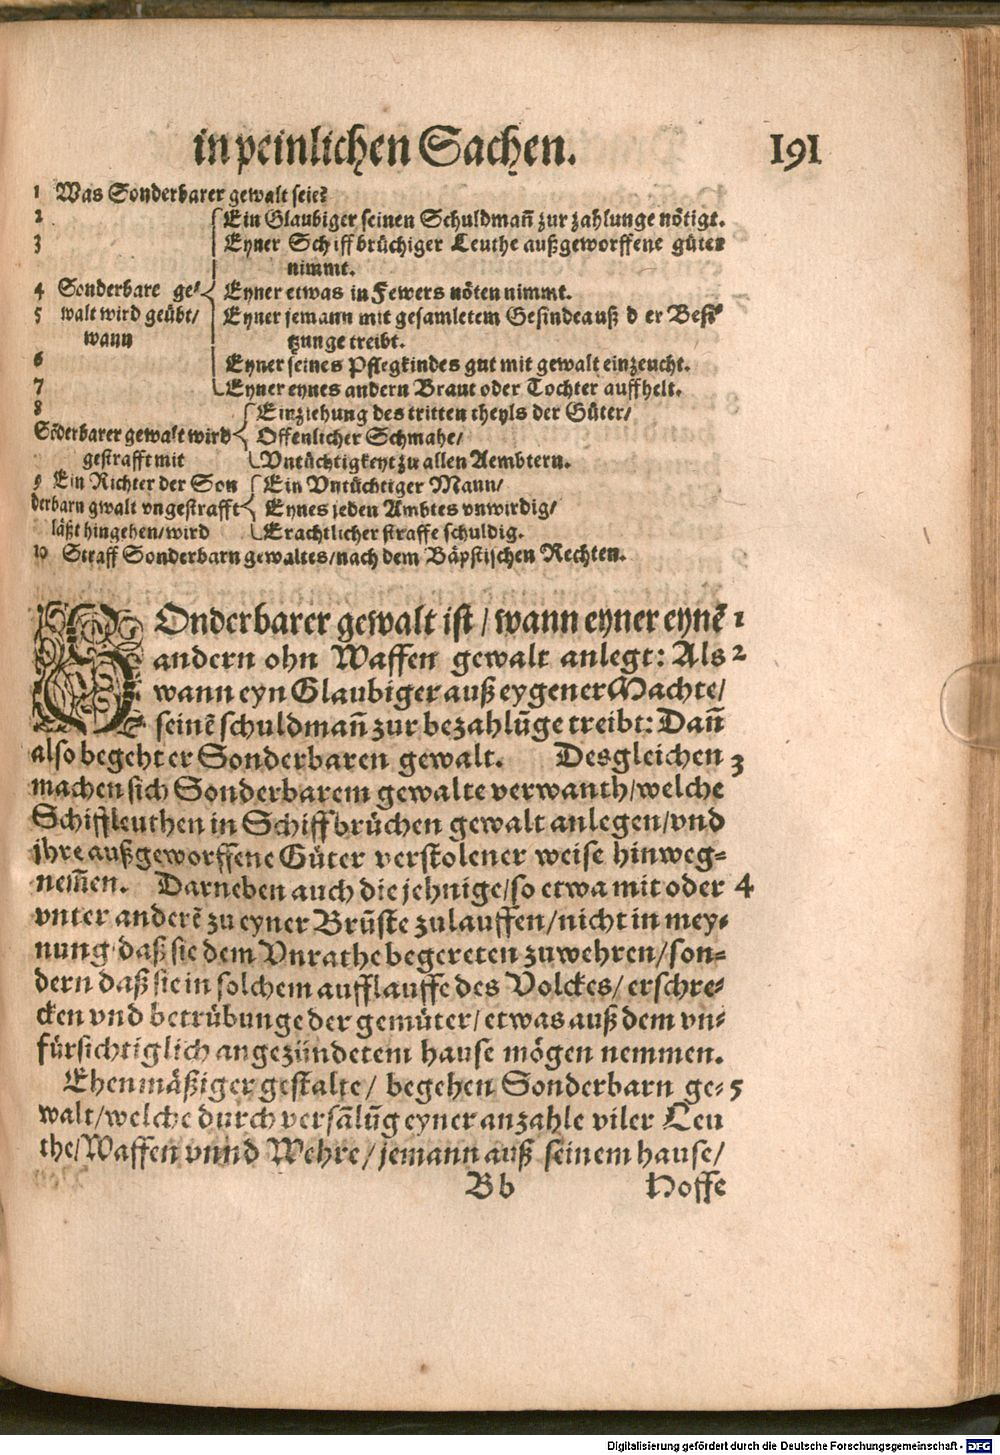 in peinlichen Sachen. 191
1 Was Sonderbarer gewalt seie?
2 Ein Glaubiger seinen Schuldmañ zur zahlunge nötigt.
3 Eyner Schiffbrüchiger Leuthe außgeworffene güter
nimmt.
4 Sonderbare ge⸗ Eyner etwas in Fewers nöten nimmt.
5 walt wird geübt/ Eyner jemann mit gesamletem Gesinde auß d er Besi⸗
wann tzunge treibt.
6 Eyner seines Pflegkindes gut mit gewalt einzeucht.
7 Eyner eynes andern Braut oder Tochter auffhelt.
8 Einziehung des tritten theyls der Güter/
Sõderbarer gewalt wird Offenlicher Schmahe/
gestrafft mit Vntüchtigkeyt zu allen Aembtern.
9 Ein Richter der Son Ein Vntüchtiger Mann/
derbarn gwalt vngestrafft Eynes jeden Ambtes vnwirdig/
läßt hingehen/wird Erachtlicher straffe schuldig.
10 Straff Sonderbarn gewaltes/nach dem Bäpstischen Rechten.
SOnderbarer gewalt ist/wann eyner eynẽ 1
andern ohn Waffen gewalt anlegt: Als 2
wann eyn Glaubiger auß eygener Machte/
seinẽ schuldmañ zur bezahlũge treibt: Dañ
also begeht er Sonderbaren gewalt. Desgleichen 3
machen sich Sonderbarem gewalte verwanth/welche
Schiffleuthen in Schiffbrüchen gewalt anlegen/vnd
jhre außgeworffene Güter verstolener weise hinweg⸗
nem̃en. Darneben auch die jehnige/so etwa mit oder 4
vnter anderẽ zu eyner Brũste zulauffen/nicht in mey⸗
nung daß sie dem Vnrathe begereten zuwehren/son⸗
dern daß sie in solchem aufflauffe des Volckes/erschre⸗
cken vnd betrübunge der gemüter/etwas auß dem vn⸗
fürsichtiglich angezündetem hause mögen nemmen.
Ehenmäßiger gestalte/ begehen Sonderbarn ge⸗ 5
walt/welche durch versãlũg eyner anzahle viler Leu
the/Waffen vnnd Wehre/jemann auß seinem hause/
Bb Hoffe
Digitalisierung gefördert durch die Deutsche Forschungsgemeinschaft - DFG